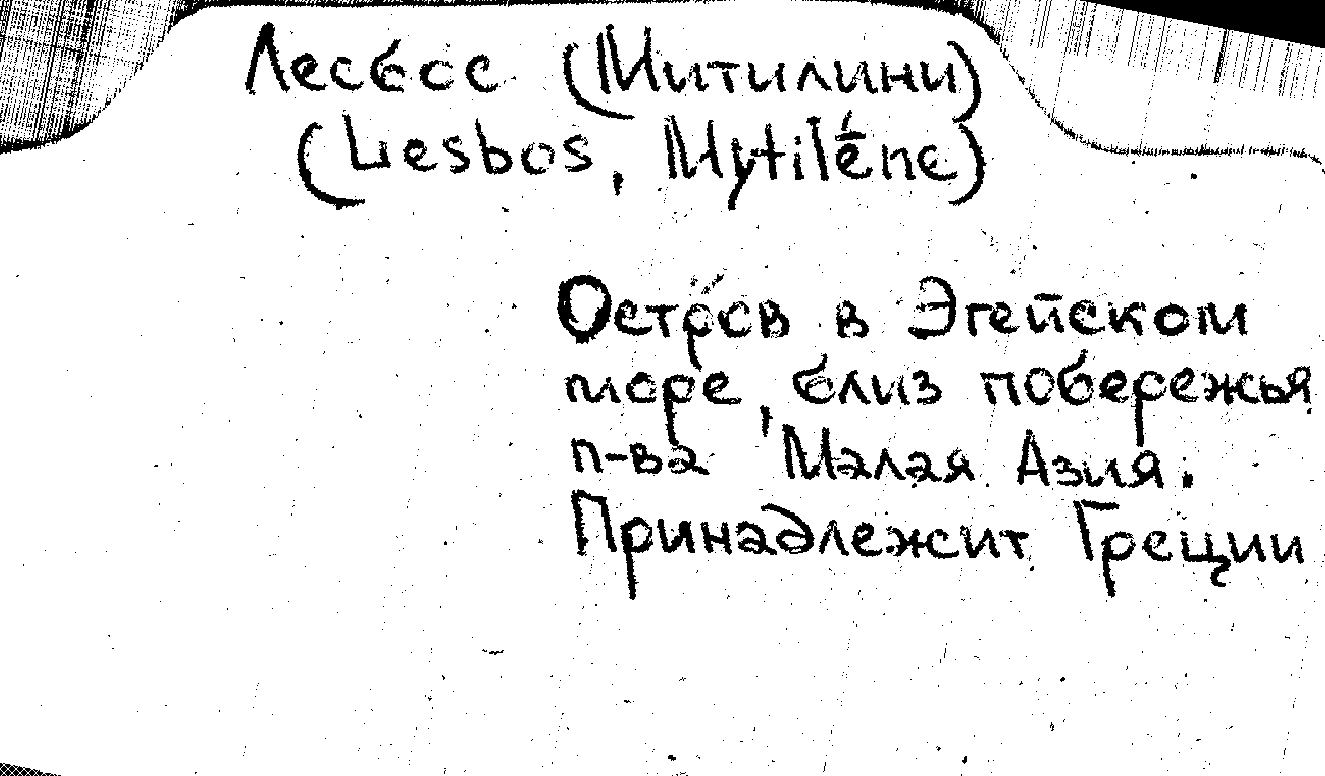 Лесбос (Митилини)
(Lesbos, Mytilḗne)
Остров в Эгейском
море, близ побережья
п-ва Малая Азия.
Принадлежит Греции